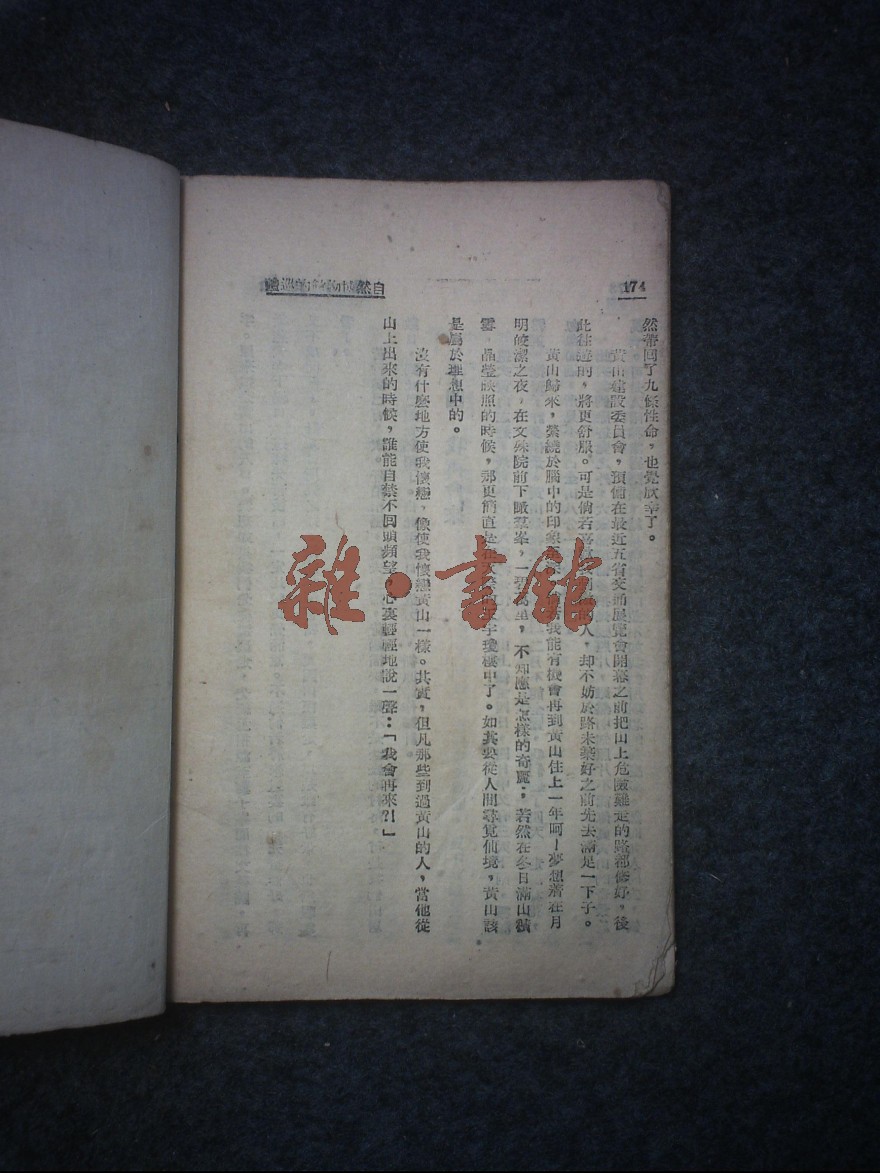 174
然帶回了九條性命，也覺欣幸了。
黃山建設委員會，預備在最近五省交通展覽會開幕之前把山上危險難走的路都修好，後
此往遊的，將更舒服。可是倘若人，却不妨於路未築好之前先去滿足一下子。
黃山歸來，縈繞於腦中的印象我能有機會再到黃山住上一年呵！夢想着在月
明皎潔之夜，在文殊院前下瞰羣峯，一碧萬里，不知應是怎樣的奇麗；若然在冬日滿山積
雪，晶瑩映照的時候，那更簡直是宇瓊樓中了。如其要從人間尋覓仙境，黃山該
是屬於理想中的。
沒有什麼地方使我懷戀，像使我懷戀黃山一樣。其實，但凡那些到過黃山的人，當他從
山上出來的時候，誰能自禁不回頭頻望，心裏輕輕地說一聲：「我會再來?!」
自然
雜·書館